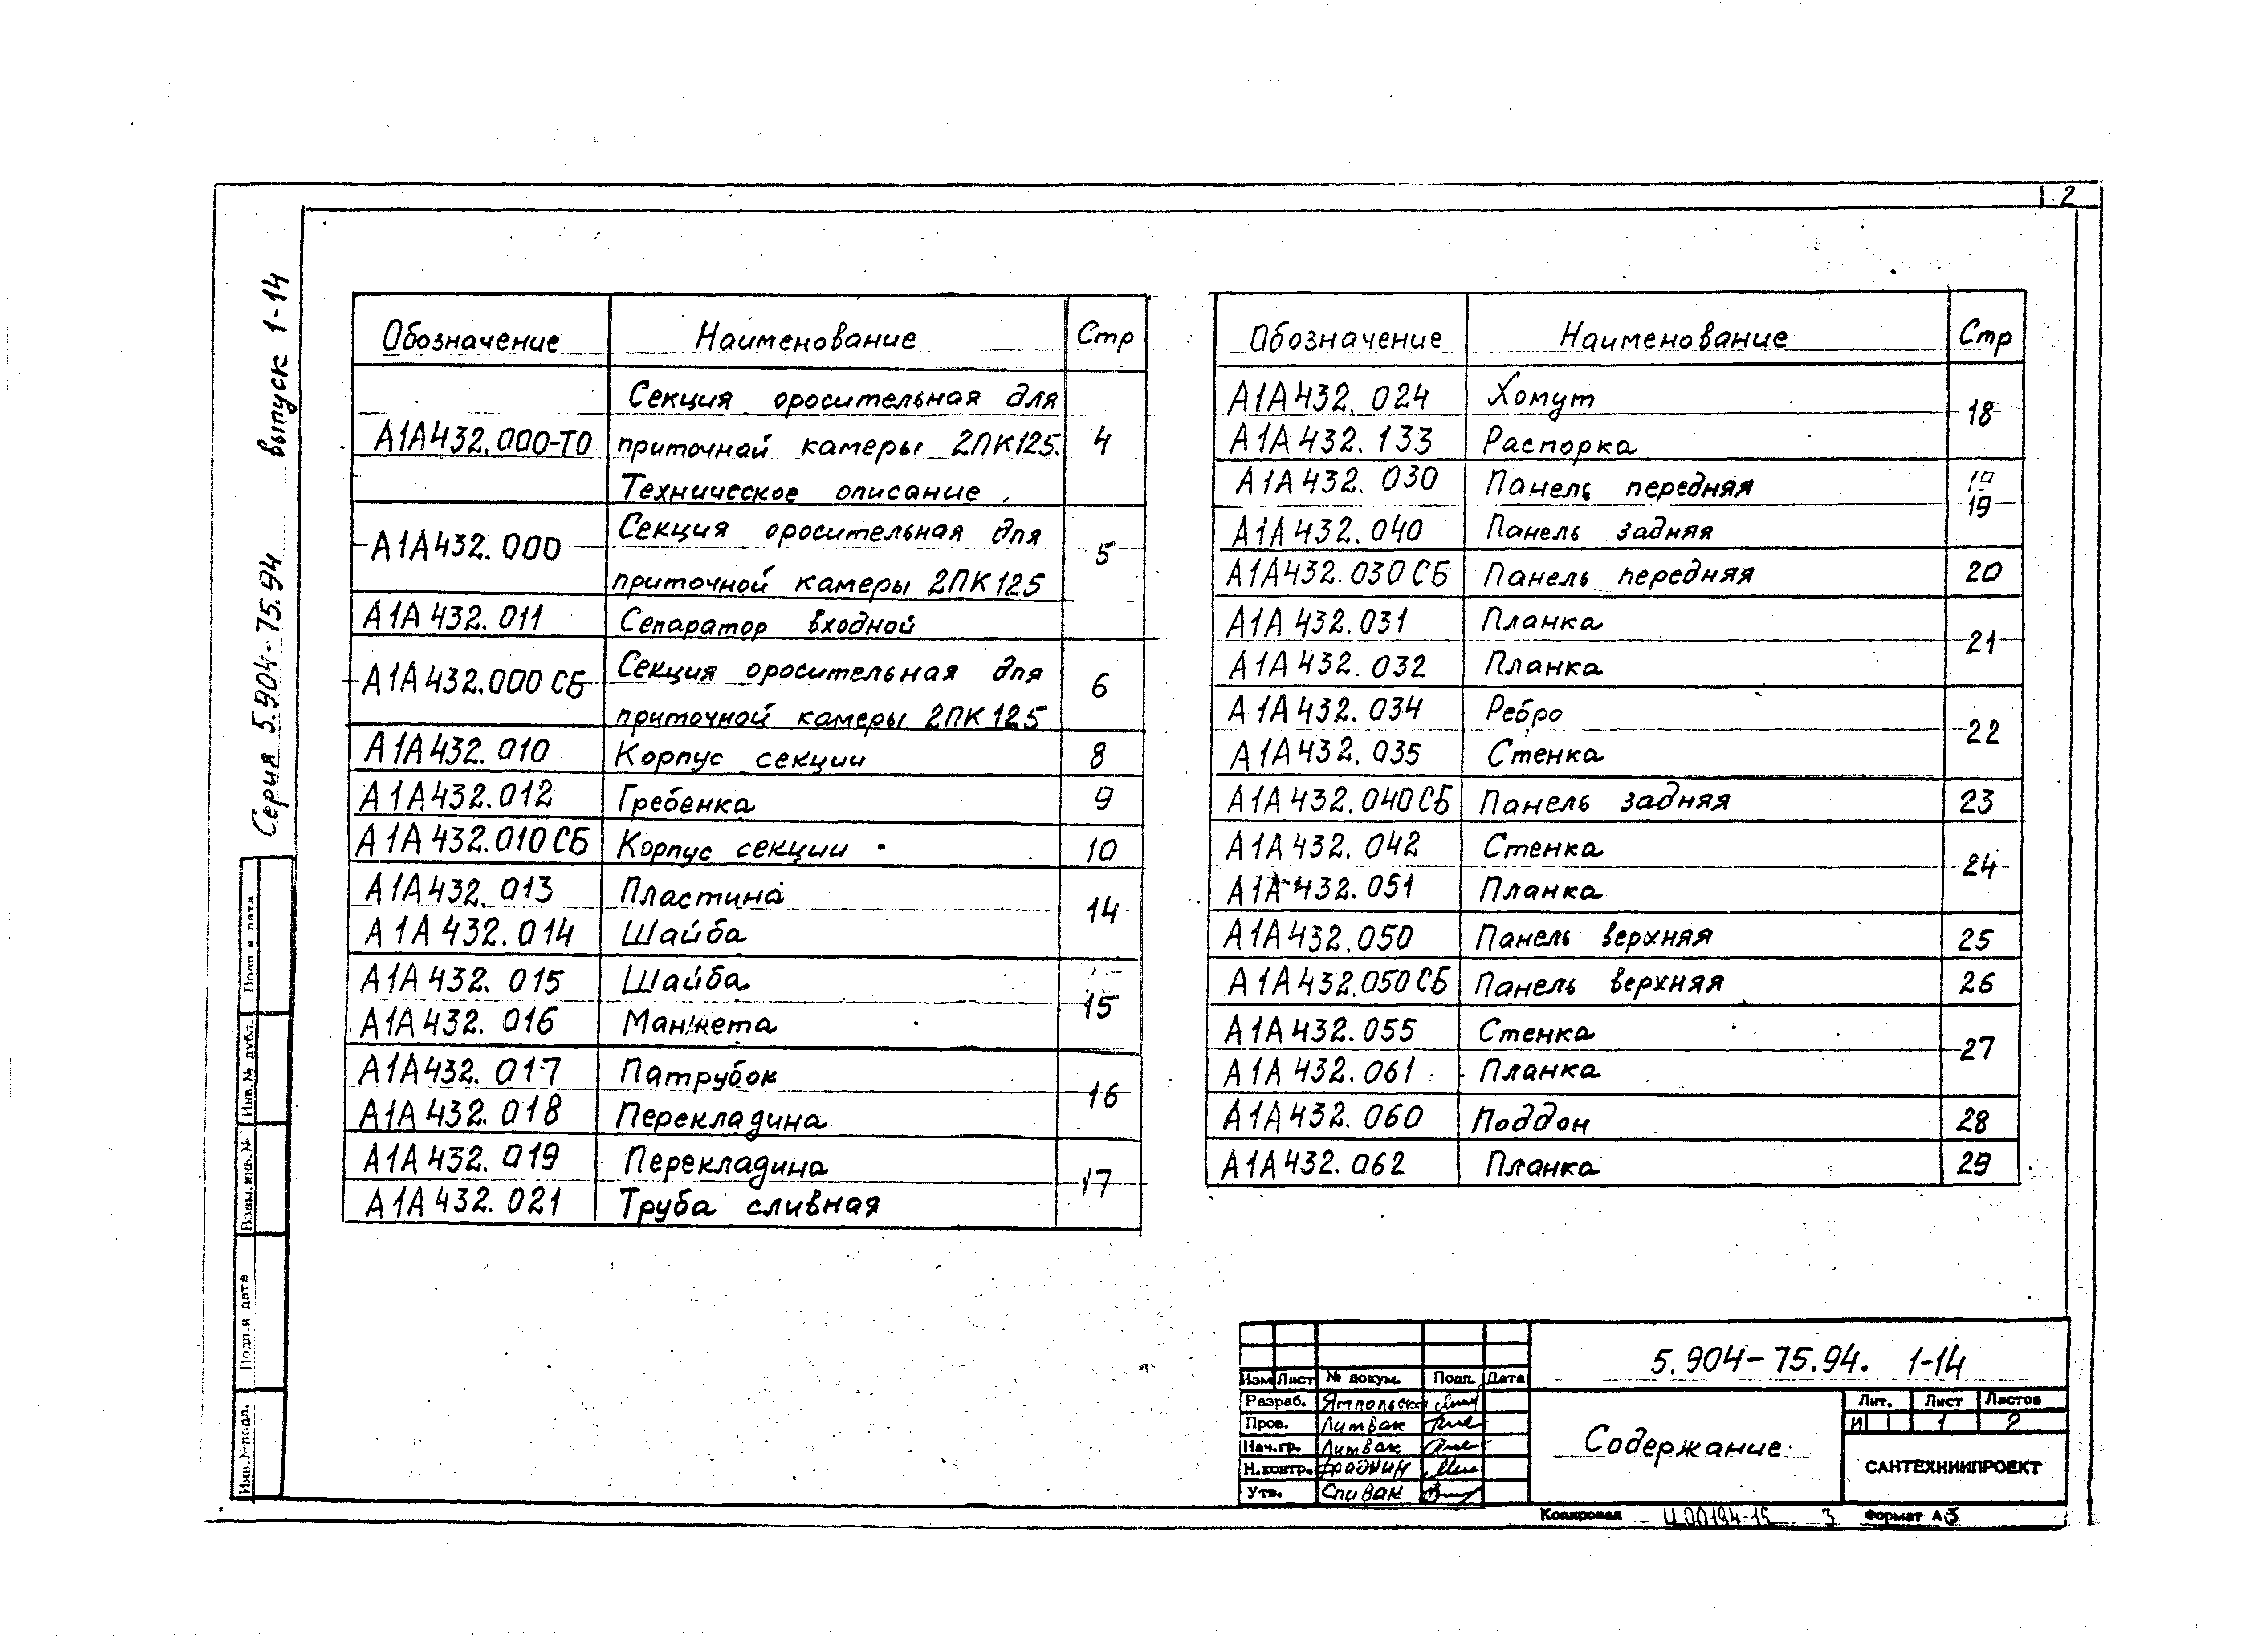 2
Серия 5.904-75.94 выпуск 1-14
Обозначение Наименование Стр
Секция оросительная для
А1А432.000-ТО приточной камеры 2ПК125. 4
Техническое описание.
А1А432.000 Секция оросительная для 5
приточной камеры 2ПК125
А1А432.011 Сепаратор входной
А1А432.000 СБ Секция оросительная для 6
приточной камеры 2ПК125
А1А432.010 Корпус секции 8
А1А432.012 Гребенка 9
А1А432.010 СБ Корпус секции 10
А1А432.013 Пластина 14
А1А432.014 Шайба
А1А432.015 Шайба 15
А1А432.016 Манжета
А1А432.017 Патрубок 16
А1А432.018 Перекладина
А1А432.019 Перекладина 17
А1А432.021 Труба сливная
Обозначение Наименование Стр
А1А432.024 Хомут 18
А1А432.133 Распорка
А1А432.030 Панель передняя 19
А1А432.040 Панель задняя
А1А432.030 СБ Панель передняя 20
А1А432.031 Планка 21
А1А432.032 Планка
А1А432.034 Ребро 22
А1А432.035 Стенка
А1А432.040 СБ Панель задняя 23
А1А432.042 Стенка 24
А1А432.051 Планка
А1А432.050 Панель верхняя 25
А1А432.050 СБ Панель верхняя 26
А1А432.055 Стенка 27
А1А432.061 Планка
А1А432.060 Поддон 28
А1А432.062 Планка 29
Подп и дата
Инв.№ дубл.
Взам.инв.№
Подп.и дата
Инв.№подл.
5.904-75.94. 1-14
Изм Лист № докум. Подп. Дата
Разраб. Ямпольск
Пров. Литвак
Нач.гр. Литвак
Н.контр.
Утв. Спивак
Содержание
Лит. Лист Листов
И 1 2
САНТЕХНИИПРОЕКТ
Копировал Ц00194-15 3 Формат А3